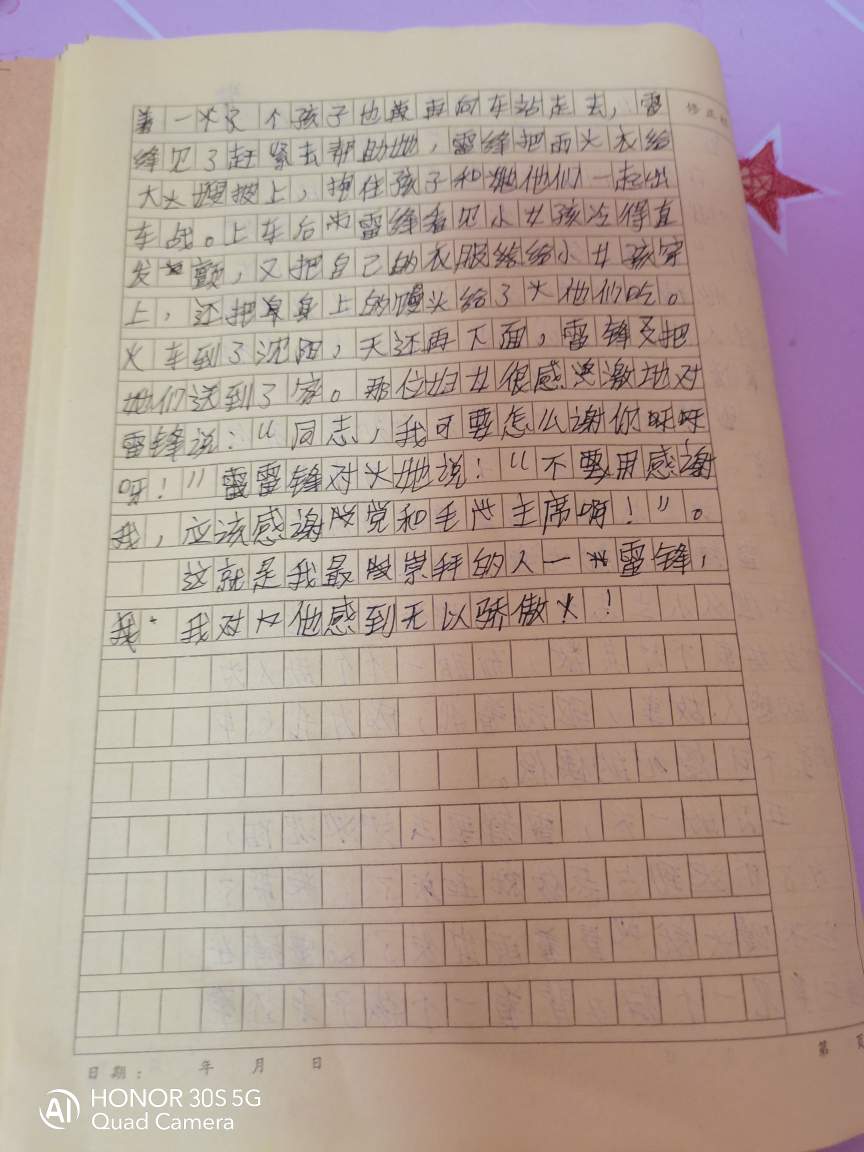 着一个孩子也再向车站走去，雷
修正栏
锋见了赶紧去帮助她，雷锋把雨衣给
大嫂披上，抱住孩子和她他们一起出
车战。上车后雷锋看见小女孩冷得直
发颤，又把自己的衣服给给小女孩穿
上，还把身上的馒头给了他们吃。
火车到了沈阳，天还再下面，雷锋又把
她们送到了家。那位妇女很感激地对
雷锋说：“同志，我可要怎么谢你呀呀
呀！”雷锋对她说！“不要用感谢
我，应该感谢党和毛主席啊！”。
这就是我最崇拜的人一雷锋，
我对他感到无以骄傲！
日期： 年 月 日
第 页
HONOR 30S 5G
Quad Camera